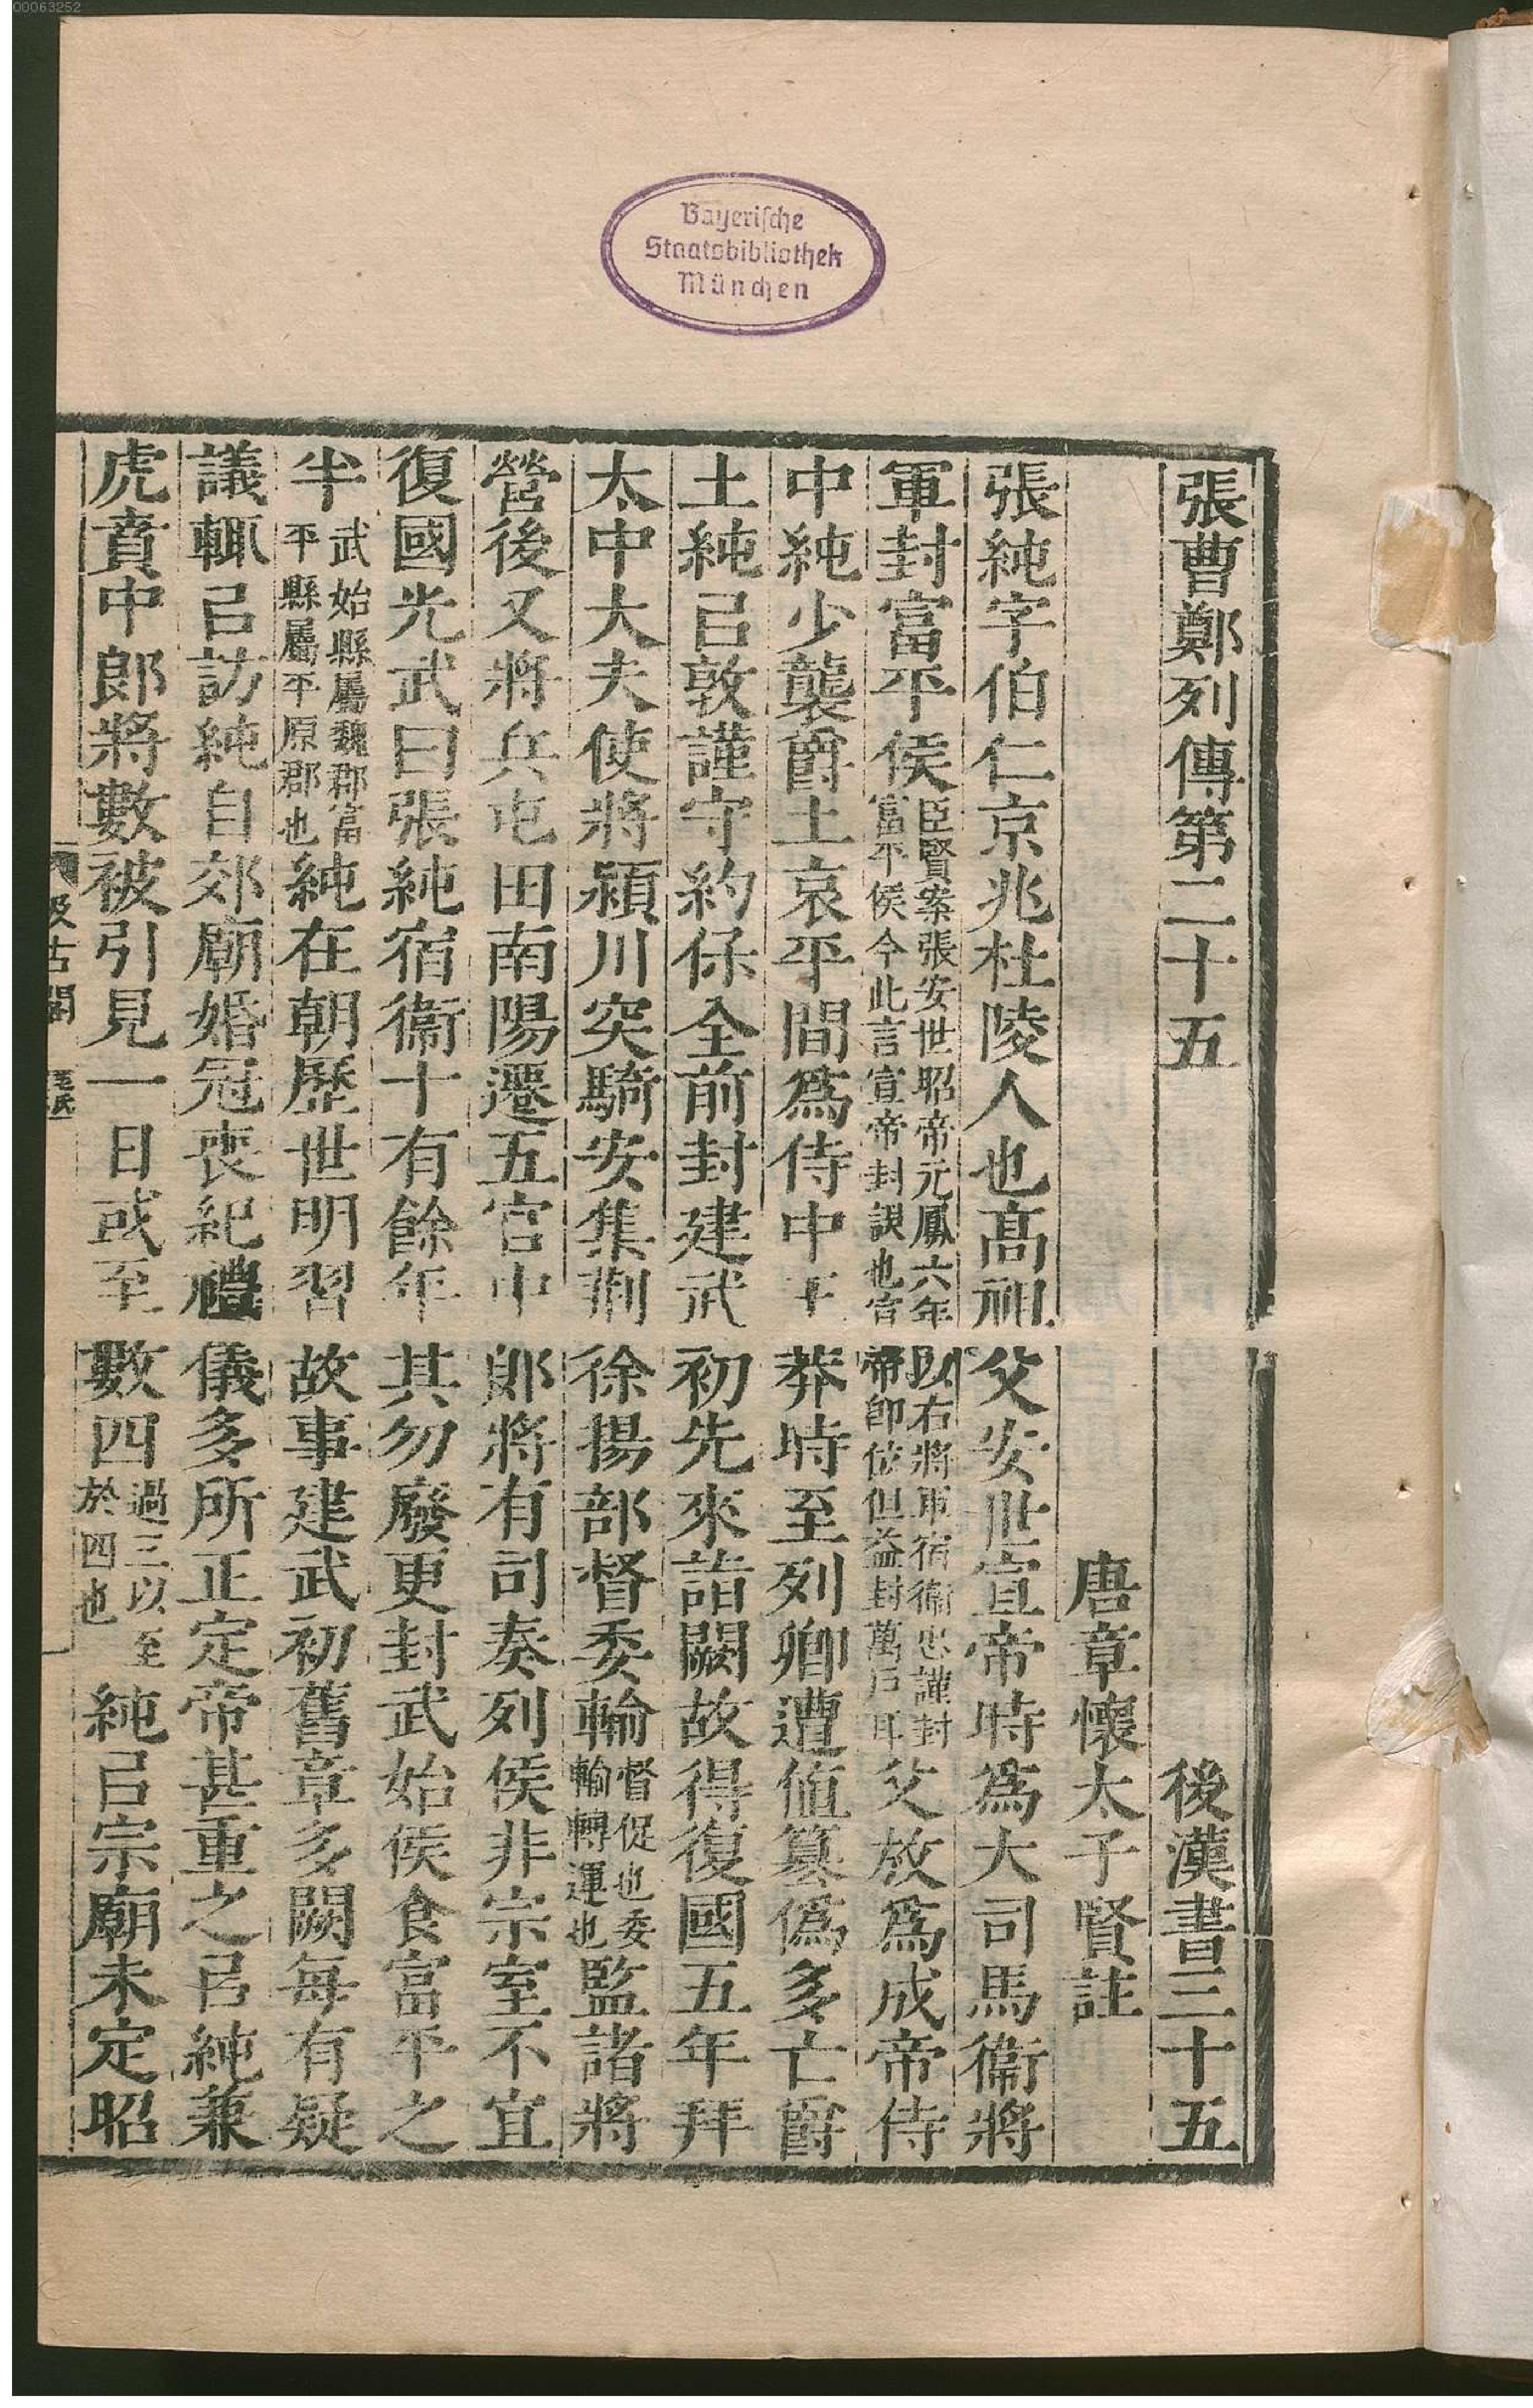 00063252
Bayerische
Staatsbibliothek
München
張曹鄭列傳第二十五 後漢書三十五
唐章懷太子賢註
張純字伯仁京兆杜陵人也高祖父安世宣帝時爲大司馬衞將
軍封富平侯臣賢案張安世昭帝元鳳六年以右將軍宿衞忠謹封富平侯今此言宣帝封誤也宣帝卽位但益封萬戸耳父放爲成帝侍
中純少襲爵土哀平間爲侍中王莽時至列卿遭値簒僞多亡爵
土純㠯敦謹守約保全前封建武初先來詣闕故得復國五年拜
太中大夫使將潁川突騎安集荆徐揚部督委輸督促也委輸轉運也監諸將
營後又將兵屯田南陽遷五官中郞將有司奏列侯非宗室不宜
復國光武曰張純宿衞十有餘年其勿廢更封武始侯食富平之
半武始縣屬魏郡富平縣屬平原郡也純在朝歷世明習故事建武初舊章多闕每有疑
議輒㠯訪純自郊廟婚冠喪紀禮儀多所正定帝甚重之㠯純兼
虎賁中郞將數被引見一日或至數四過三以至於四也純㠯宗廟未定昭
汲古閣